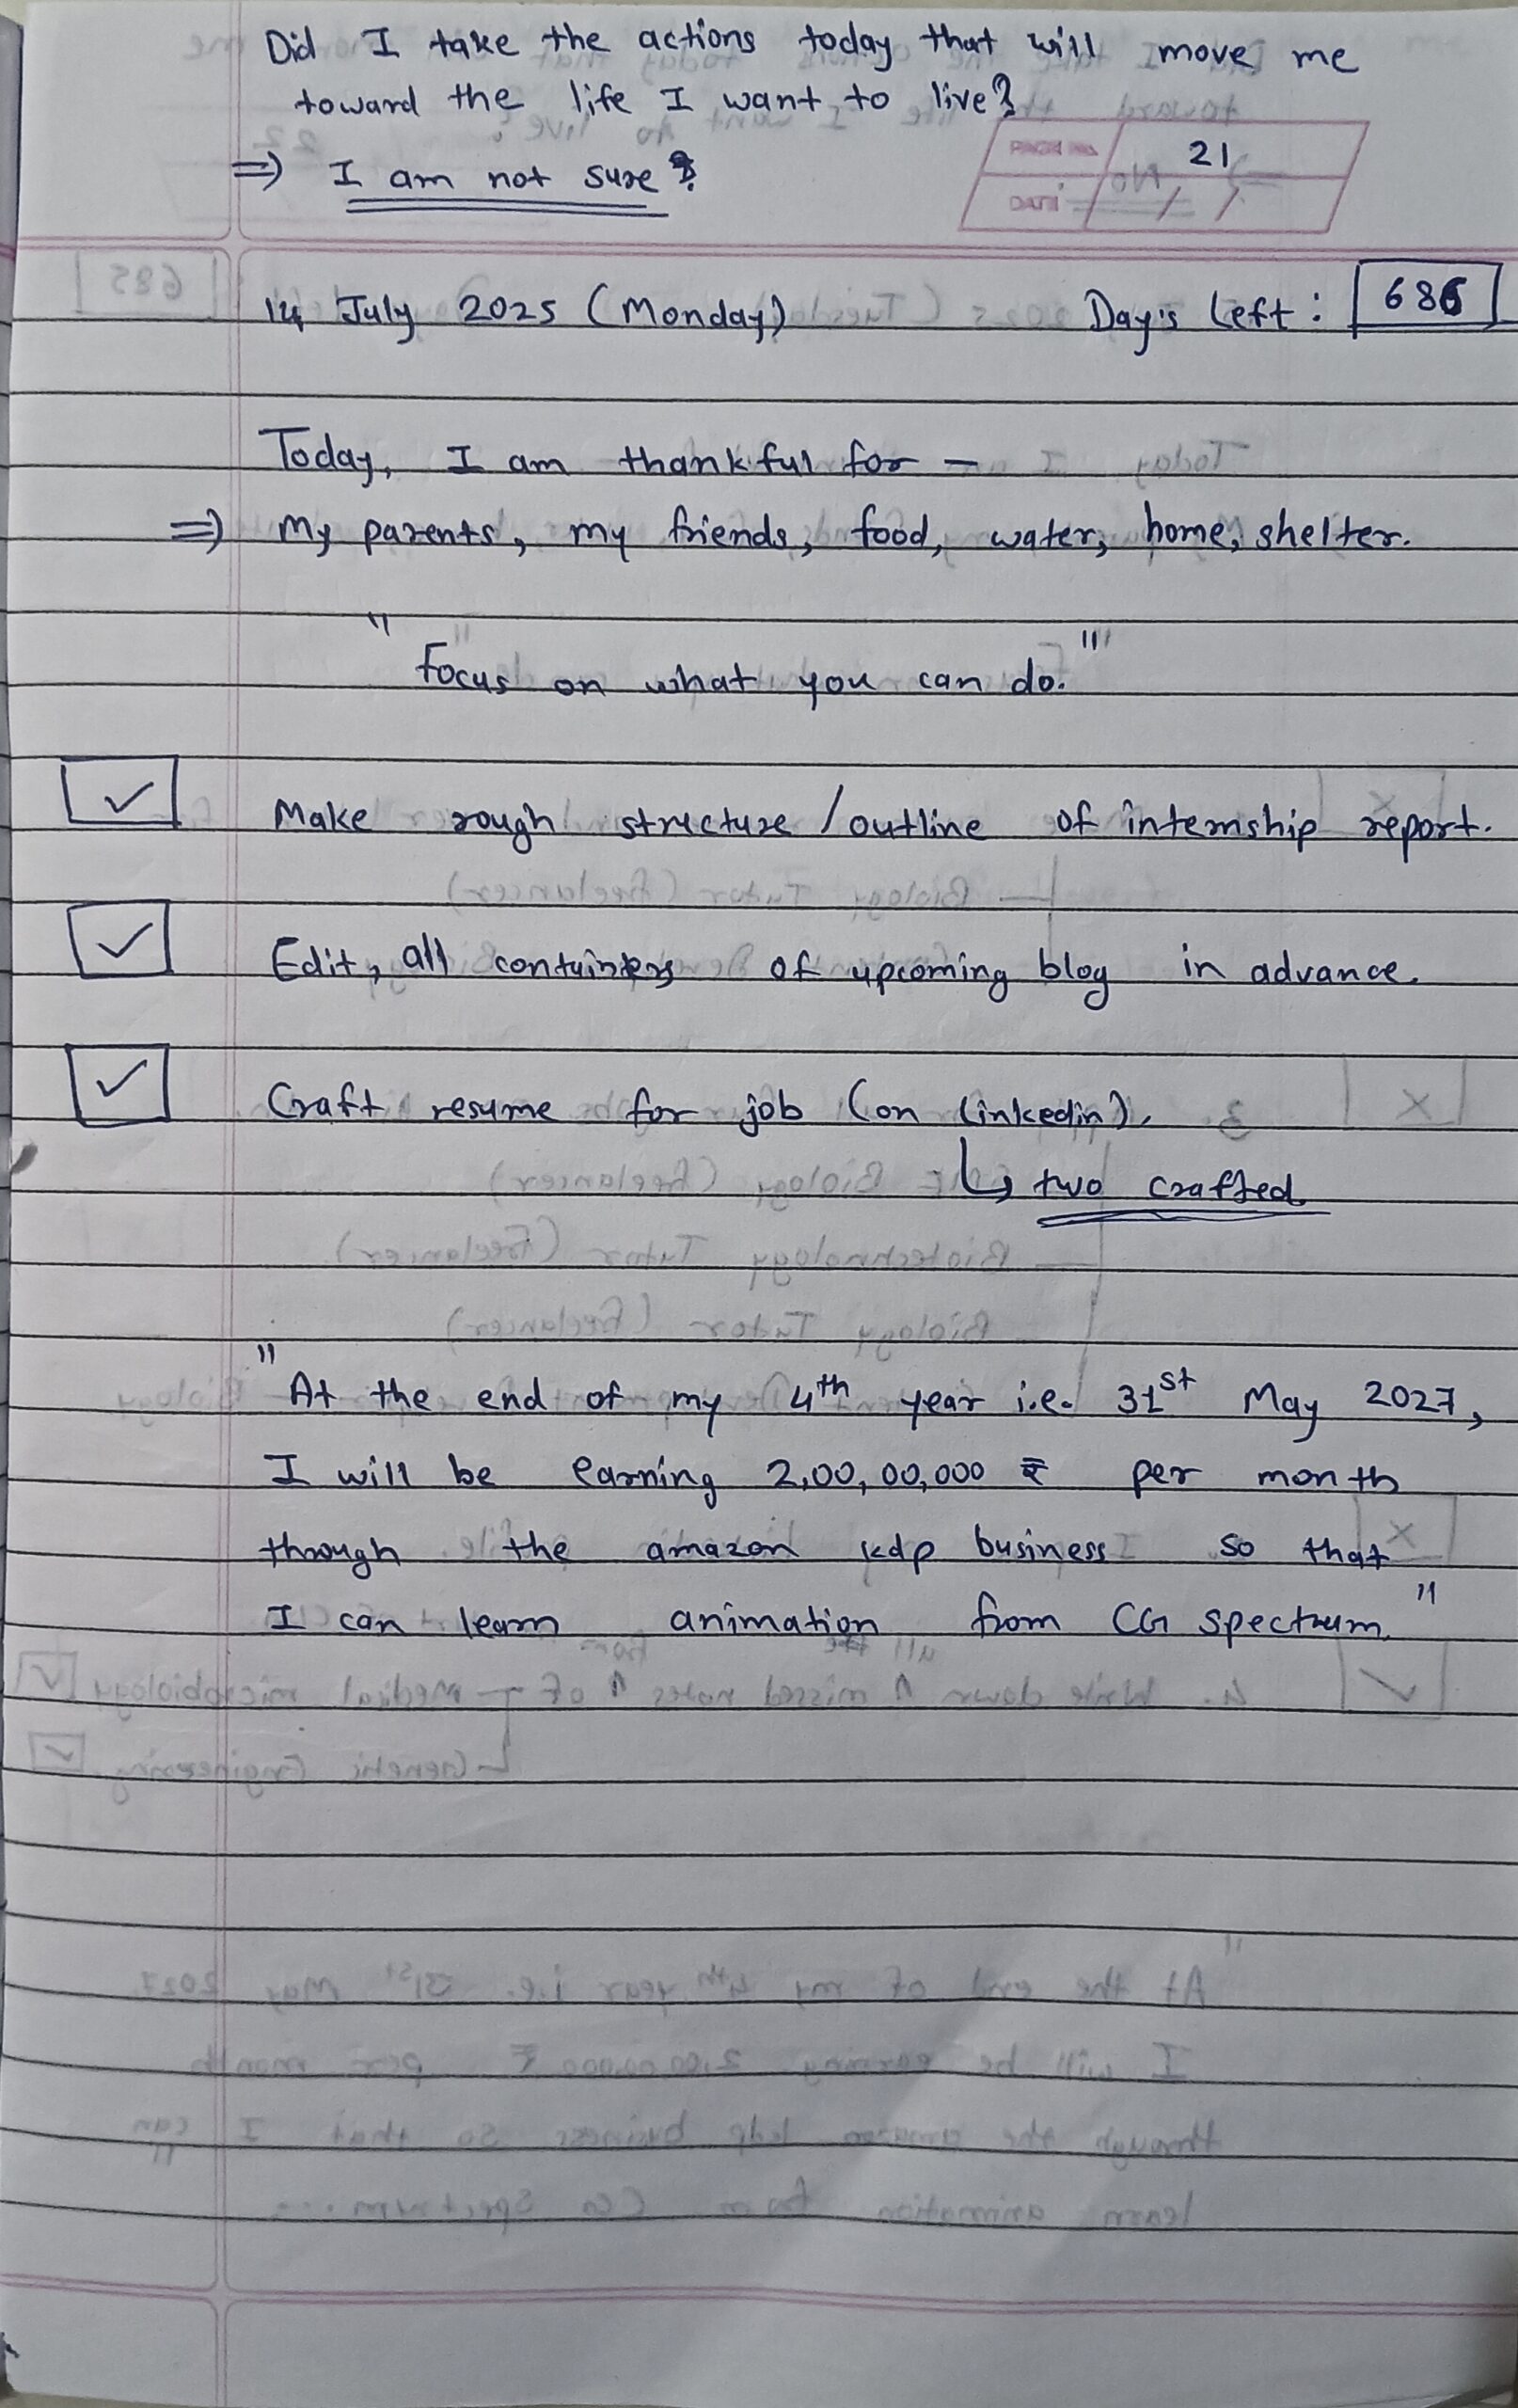 Did I take the actions today that will move me
toward the life I want to live?
⇒ I am not sure?
PAGE NO. 21
DATE / /
14 July 2025 (Monday) Day's Left: 686
Today, I am thankful for —
⇒ My parents, my friends, food, water, home, shelter.
"Focus on what you can do."
☑ Make rough structure/outline of internship report.
☑ Edit, all containers of upcoming blog in advance.
☑ Craft resume for job (on Linkedin).
↳ two crafted
"At the end of my 4th year i.e. 31st May 2027,
I will be earning 2,00,00,000 ₹ per month
through the amazon kdp business so that
I can learn animation from CG spectrum."